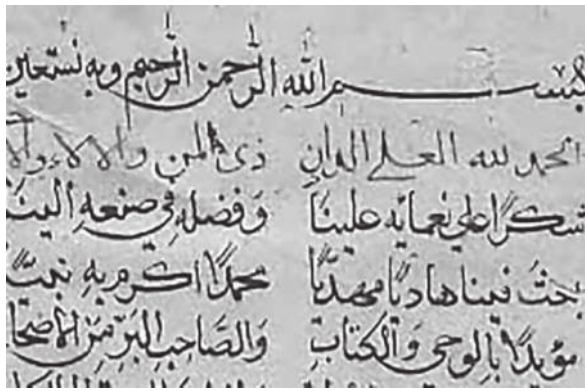 بسم الله الرَّحمن الرَّحيم وبه نستعين
الحمد لله العلي الدانِ ذي المن والالاء
شكرًا علي نعمايه علينا وَفضلهِ في صنعهِ الينا
بعثَ فينا هاديًا مهديًّا محمدًا اكرم بهِ نبيًّا
مويدًا بالوحي وَالكتابِ وَالصَاحبِ البَرِّ مِنَ